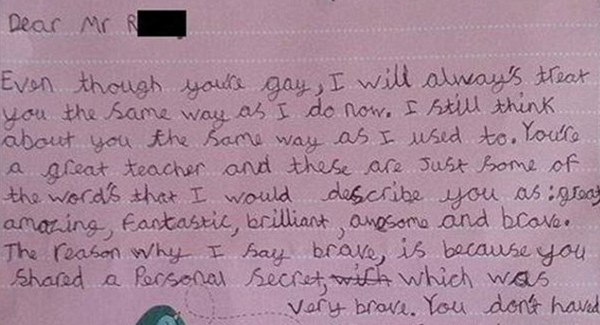 Dear Mr R
Even though you're gay, I will always's treat
you the same way as I do now. I still think
about you the same way as I used to. You're
a great teacher and these are just some of
the word's that I would describe you as: great
amazing, fantastic, brilliant, awesome and brave.
The reason why I say brave, is because you
shared a Personal secret, with which was
very brave. You don't haved